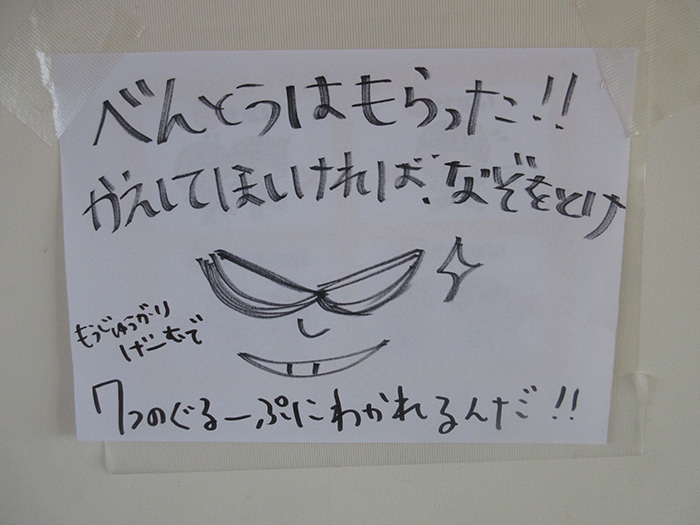 べんとうはもらった!!
かえしてほしければ、なぞをとけ
もうじゅうがり
げーむで
7つのぐるーぷにわかれるんだ!!